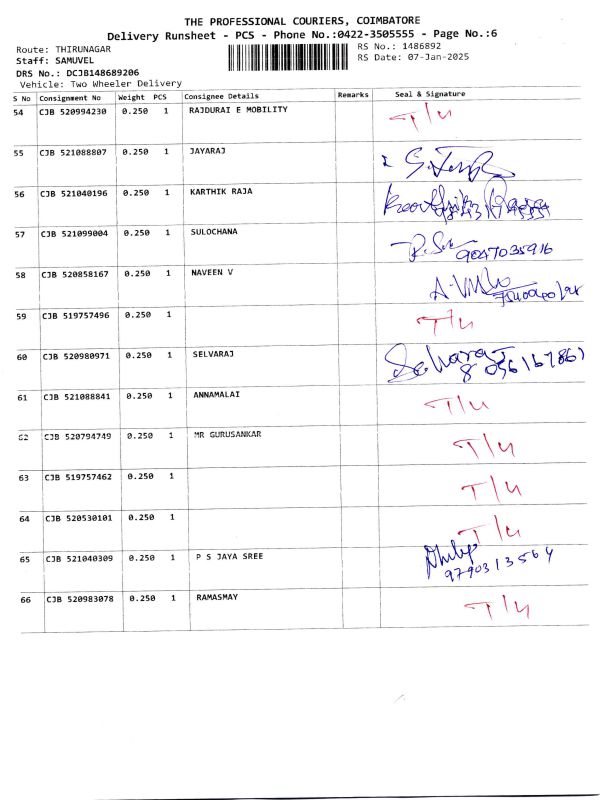 THE PROFESSIONAL COURIERS, COIMBATORE
Delivery Runsheet - PCS - Phone No.:0422-3505555 - Page No.:6
Route: THIRUNAGAR
RS No.: 1486892
Staff: SAMUVEL
RS Date: 07-Jan-2025
DRS No.: DCJB148689206
Vehicle: Two Wheeler Delivery
S No Consignment No Weight PCS Consignee Details Remarks Seal & Signature
54 CJB 520994230 0.250 1 RAJDURAI E MOBILITY T/U
55 CJB 521088807 0.250 1 JAYARAJ
56 CJB 521040196 0.250 1 KARTHIK RAJA
57 CJB 521099004 0.250 1 SULOCHANA 9047035916
58 CJB 520858167 0.250 1 NAVEEN V
59 CJB 519757496 0.250 1 T/U
60 CJB 520980971 0.250 1 SELVARAJ
61 CJB 521088841 0.250 1 ANNAMALAI T/U
62 CJB 520794749 0.250 1 MR GURUSANKAR T/U
63 CJB 519757462 0.250 1 T/U
64 CJB 520530101 0.250 1 T/U
65 CJB 521040309 0.250 1 P S JAYA SREE
9790313564
66 CJB 520983078 0.250 1 RAMASMAY T/U